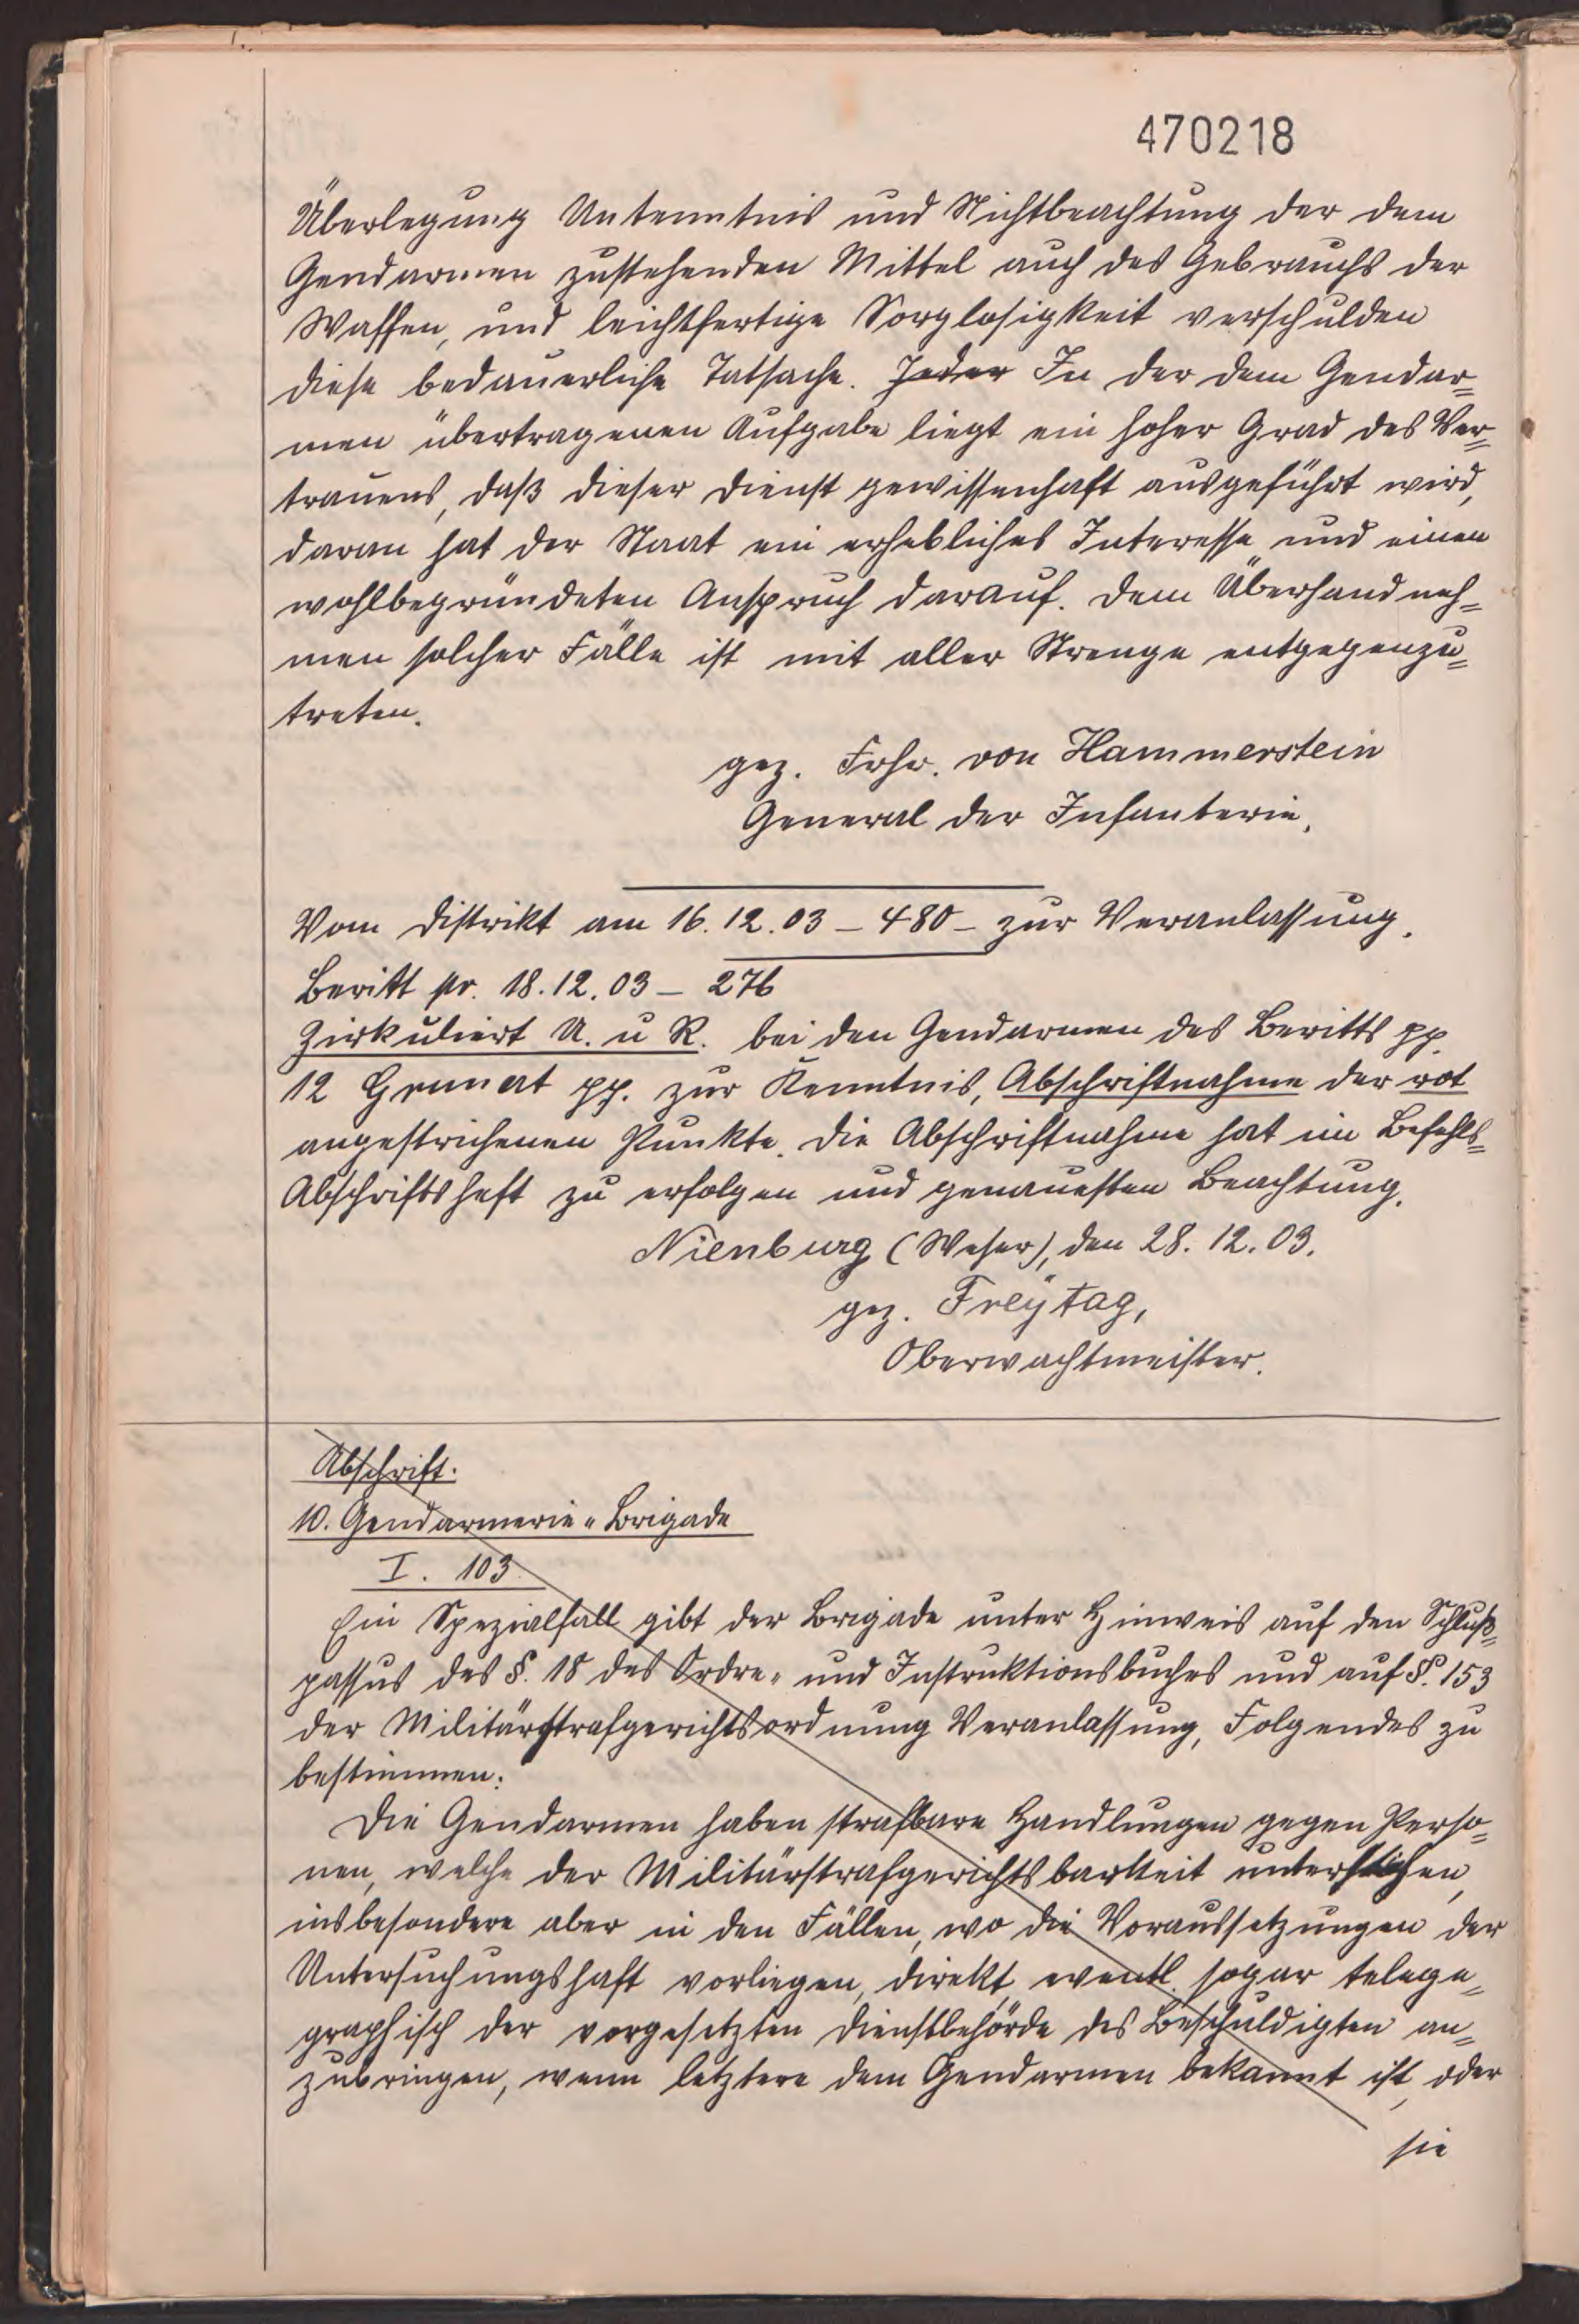 470218
Überlegung Untenntnis und Nichtbeachtung der dem
Gendarmen zustehenden Mittel auch des Gebrauchs der
Waffen, und leichtfertige Sorglosigkeit verschulden
diese bedauerliche Tatsache. Jeder In der dem Gendar=
men übertragenen Aufgabe liegt ein hoher Grad des Ver=
trauens, daß dieser Dienst gewissenhaft ausgeführt wird,
daran hat der Staat ein erhebliches Interesse und einen
wohlbegründeten Anspruch darauf. Dem Überhandneh=
men solcher Fälle ist mit aller Strenge entgegenzu=
treten.
gez. Frhr. von Hammerstein
General der Infanterie.
Vom Distrikt am 16.12.03 – 480 – zur Veranlassung.
Beritt pr. 18.12.03 – 276
Zirkuliert U. u R. bei den Gendarmen des Beritts pp.
12 pp. zur Kenntnis, Abschriftnahme der rot
angestrichenen Punkte. Die Abschriftnahme hat im Befehls=
Abschriftsheft zu erfolgen und genauesten Beachtung.
Nienburg (Weser), den 28.12.03.
gez. Freÿtag,
Oberwachtmeister.
Abschrift.
10. Gendarmerie-Brigade
I. 103.
Ein Spezialfall gibt der Brigade unter Hinweis auf den Schluß=
passus des §. 18 des Ordre- und Instruktionsbuches und auf §. 153
der Militärstrafgerichtsordnung Veranlassung, Folgendes zu
bestimmen:
Die Gendarmen haben strafbare Handlungen gegen Perso=
nen, welche der Militärstrafgerichtsbarkeit unterstehen,
insbesondere aber in den Fällen, wo die Voraussetzungen der
Untersuchungshaft vorliegen, direkt, eventl. sogar telega=
graphisch der vorgesetzten Dienstbehörde des Beschuldigten an=
zubringen, wenn letztere dem Gendarmen bekannt ist, oder
sie